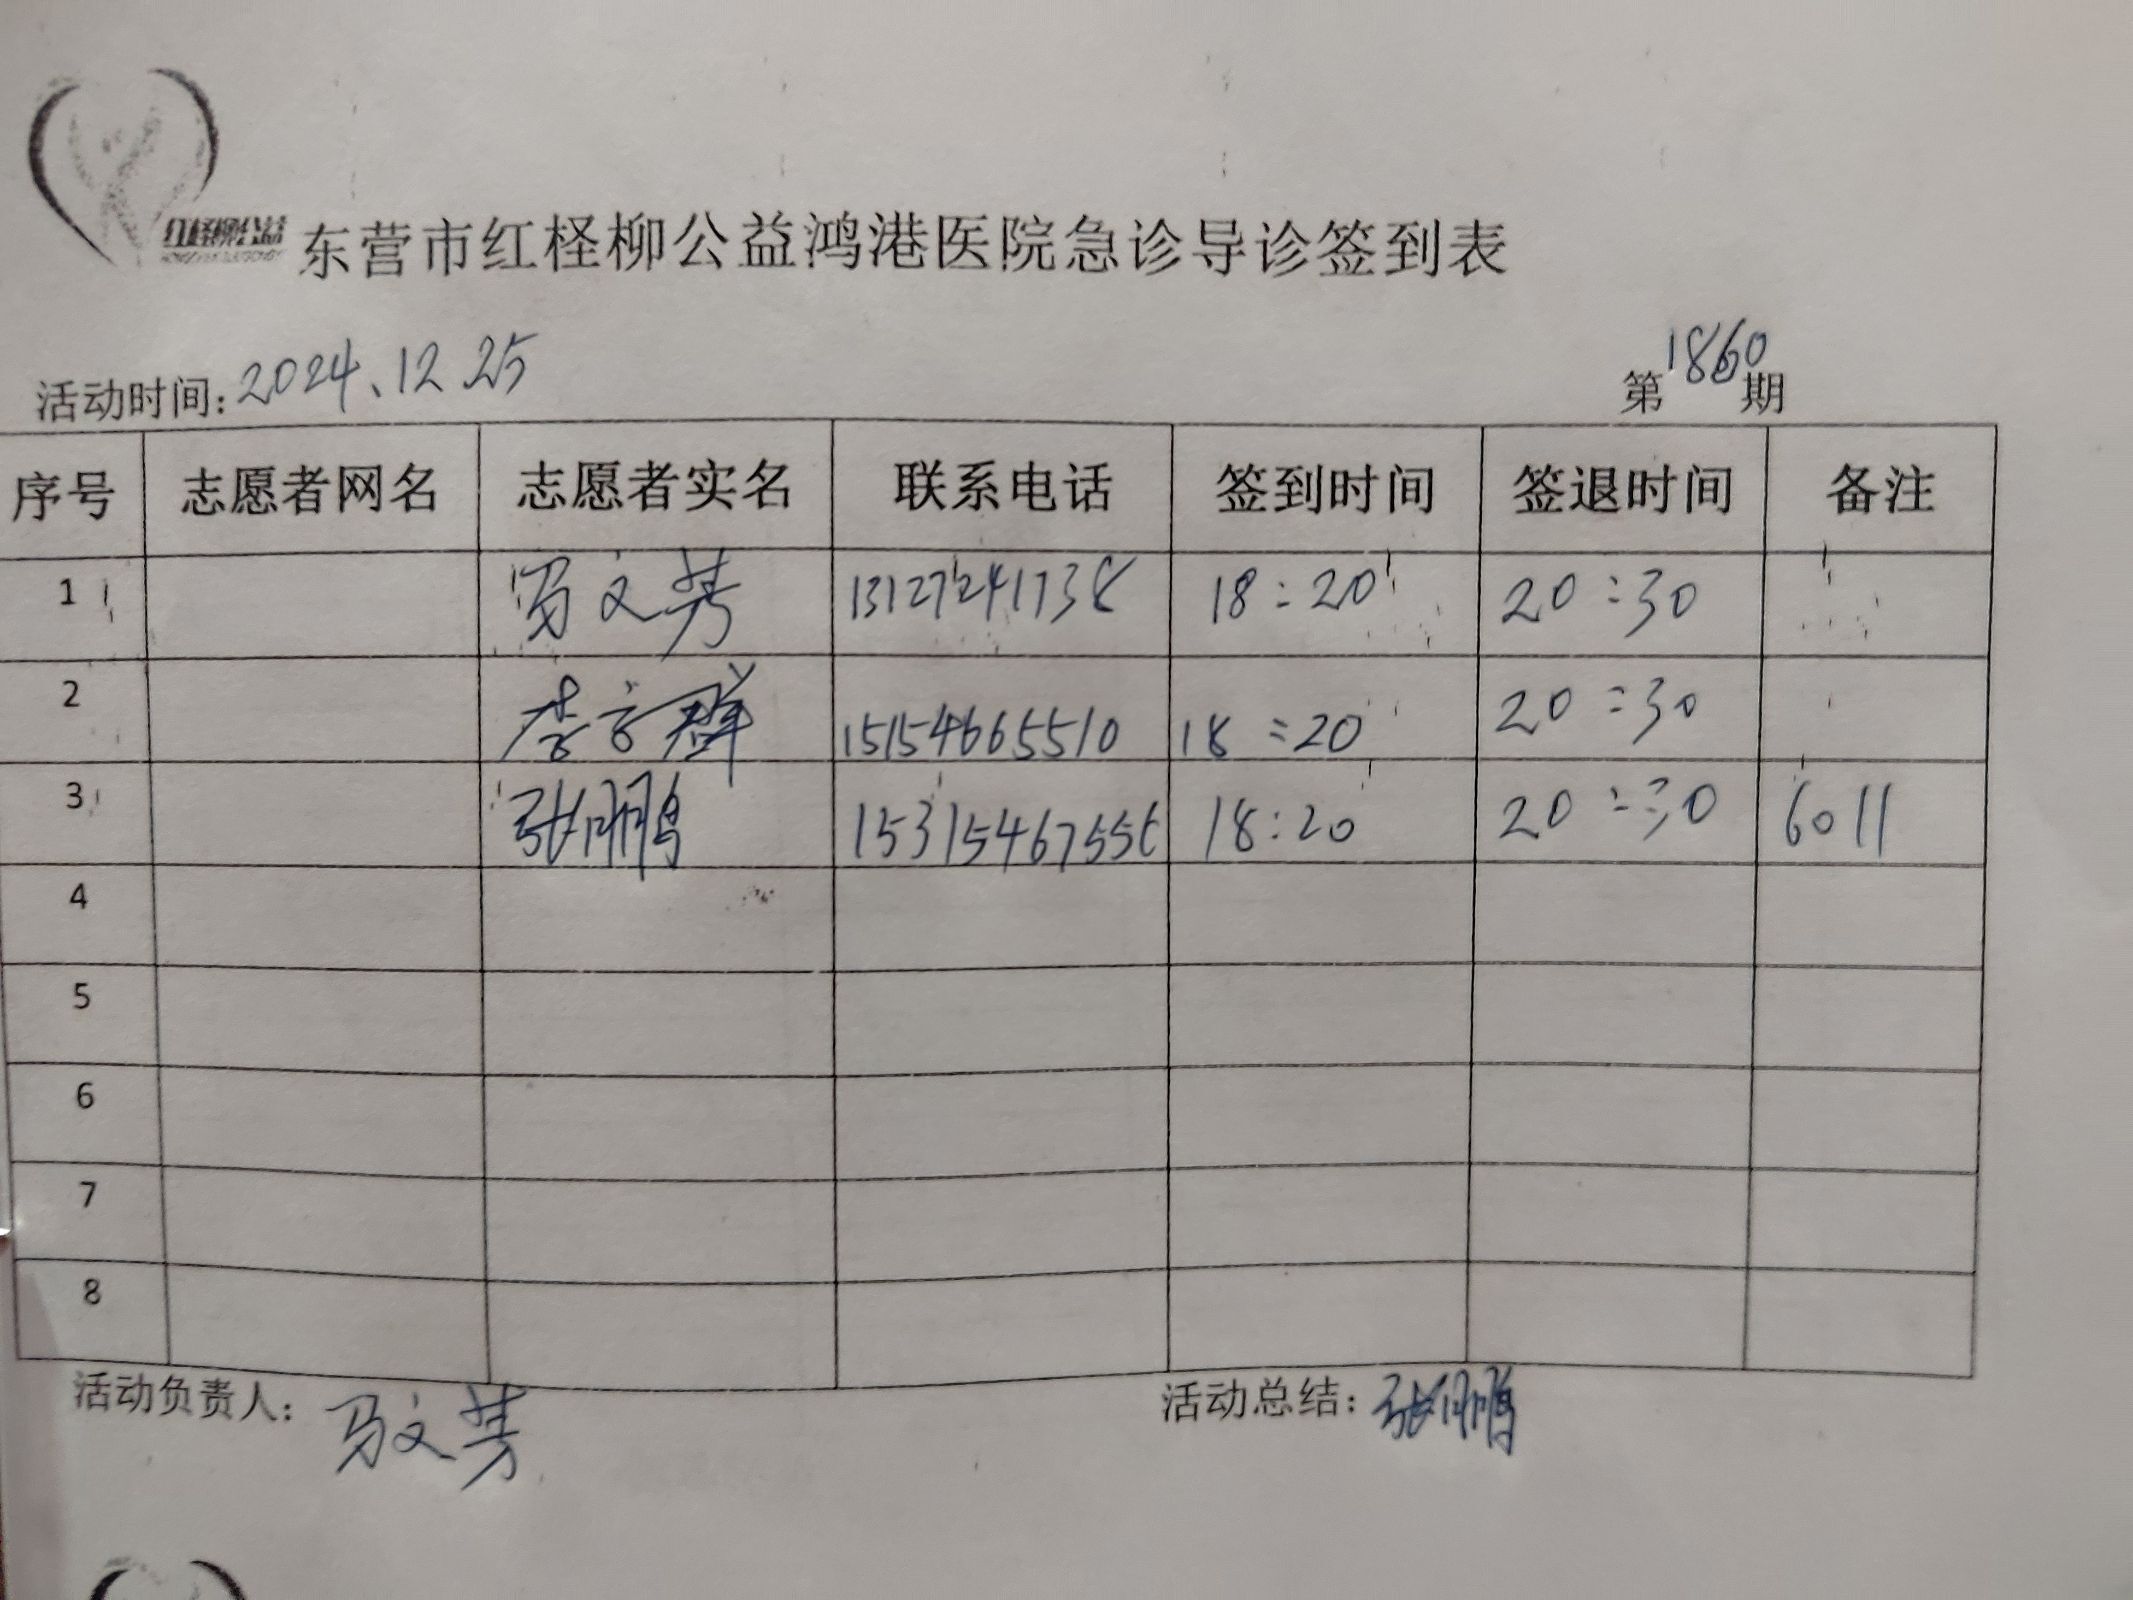 红柽柳公益
东营市红柽柳公益鸿港医院急诊导诊签到表
活动时间:2024、12.25 第1860期
序号 志愿者网名 志愿者实名 联系电话 签到时间 签退时间 备注
1 马文芳 13127241738 18:20 20:30
2 李言群 15154665510 18:20 20:30
3 张鹏 18:20 20:30 6011
4
5
6
7
8
活动负责人:马文芳 活动总结:张鹏